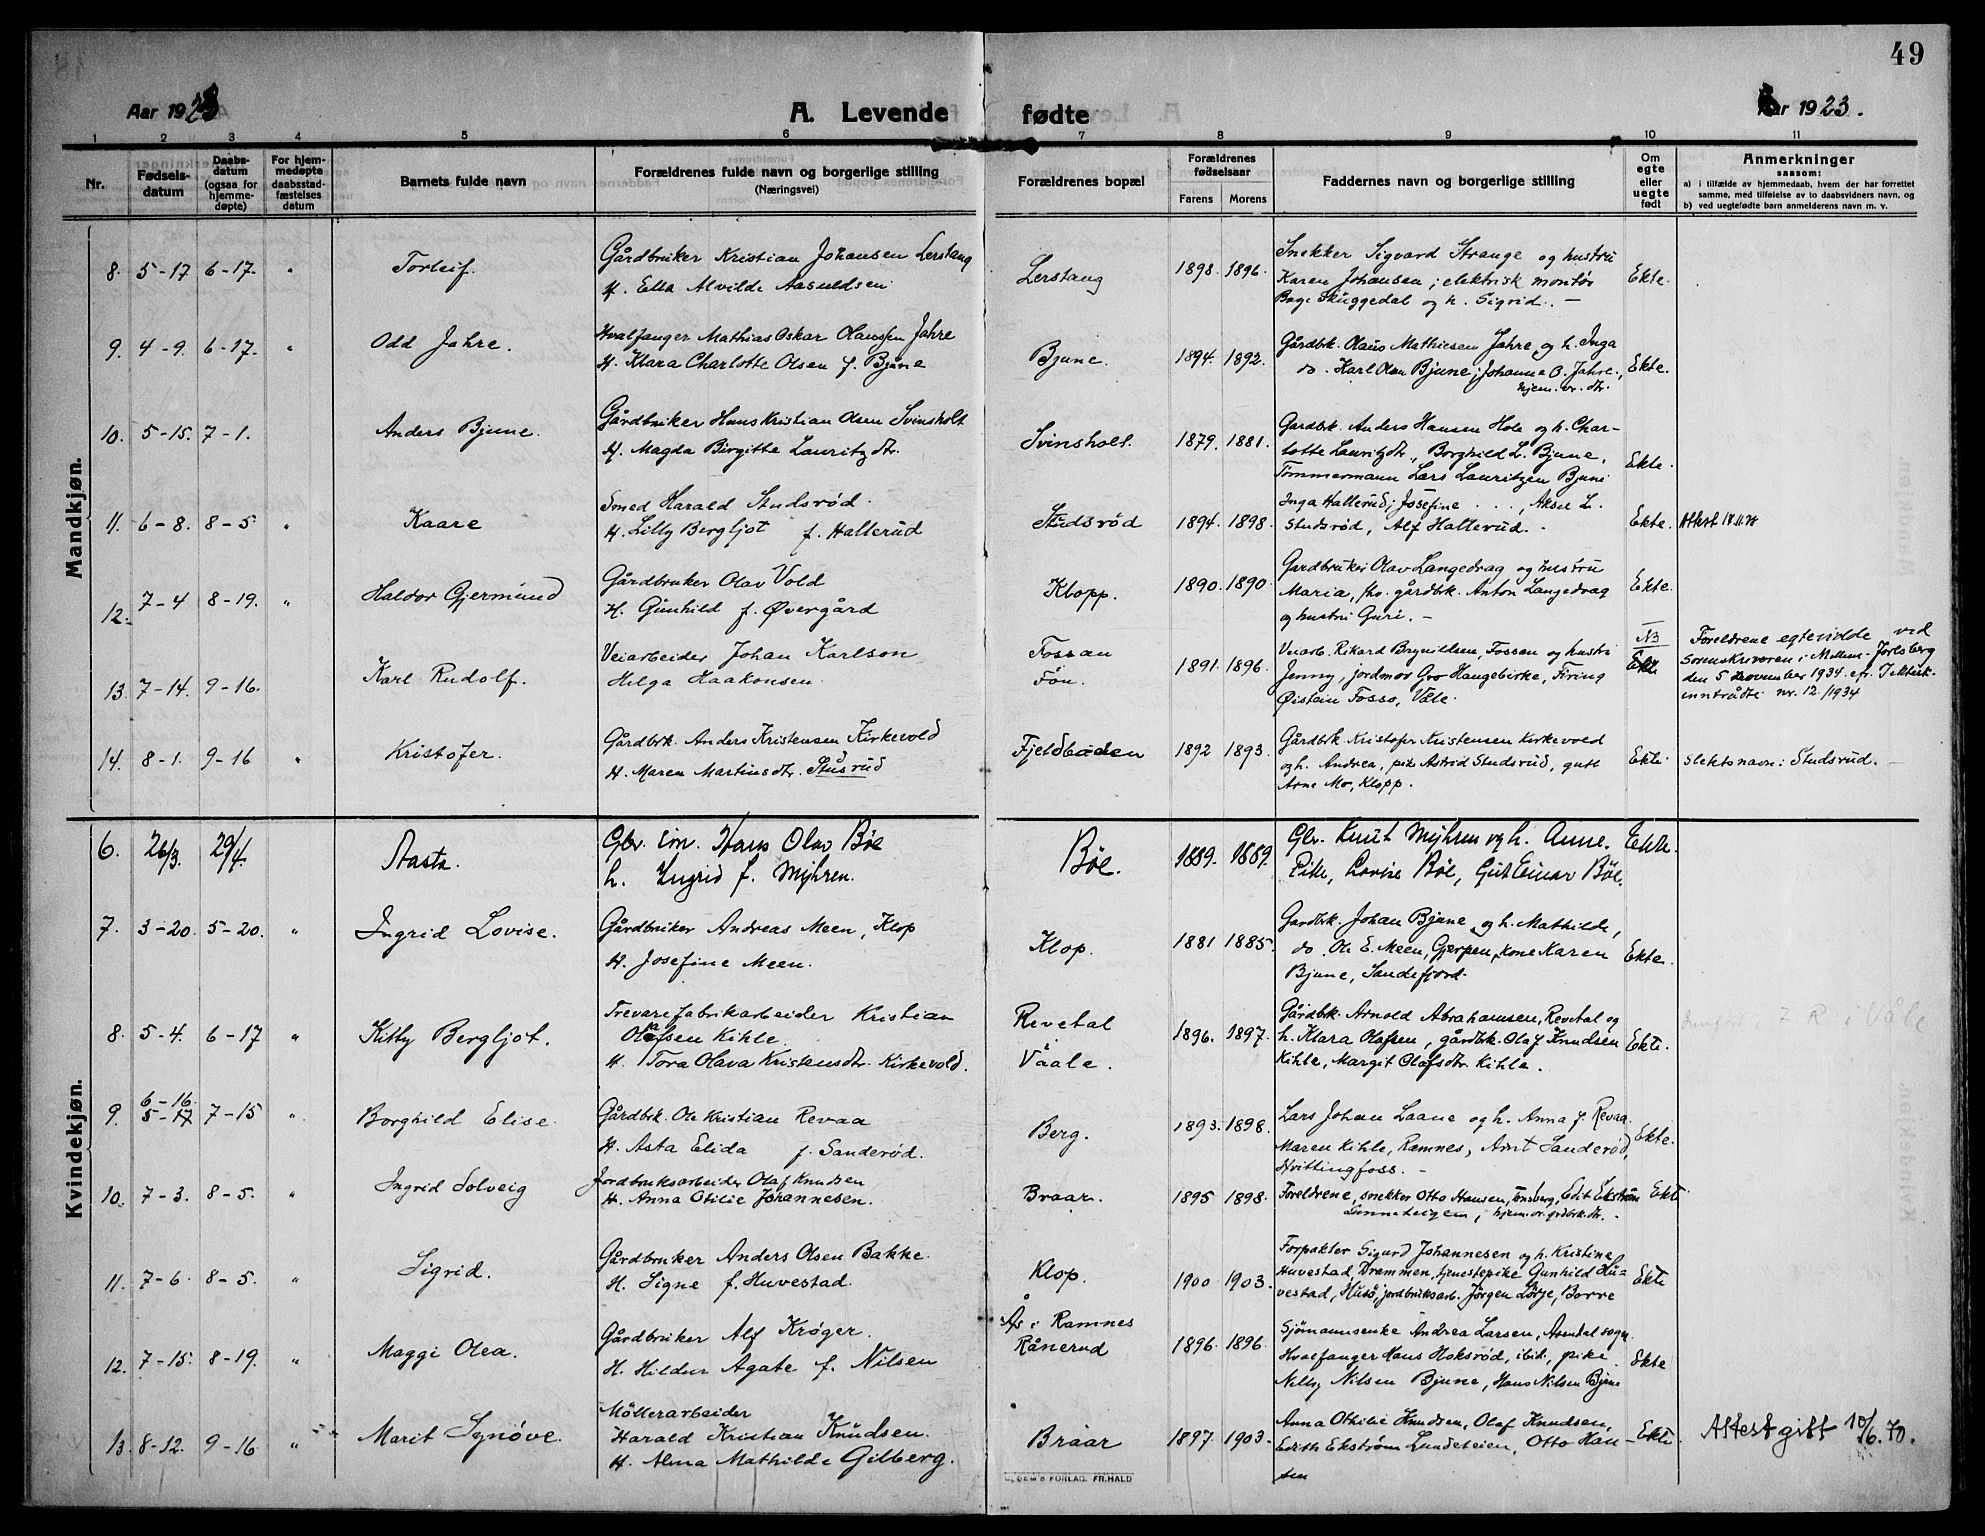 49
Aar 1923
A. Levende fødte
Aar 1923.
1 2 3 4 5 6 7 8 9 10 11
Nr.
Fødsels-
datum
Daabs-
datum
(ogsaa for
hjemme-
døpte)
For hjem-
medøpte
daabsstad-
fæstelses
datum
Barnets fulde navn
Forældrenes fulde navn og borgerlige stilling
(Næringsvei)
Forældrenes bopæl
Forældrenes
fødselsaar
Farens Morens
Faddernes navn og borgerlige stilling
Om
egte
eller
uegte
født
Anmerkninger
saasom:
a) i tilfælde av hjemmedaab, hvem der har forrettet
samme, med tilføielse av to daabsvidners navn, og
b) ved uegtefødte barn anmelderens navn m. v.
Mandkjøn.
8. 5-17 6-17. " Torleif.
Gårdbruker Kristian Johansen Lerstang
H. Ella Alvilde Aasuldsen.
Lerstang 1898. 1896.
Snekker Sigvard Strange og hustru
Karen Johansen; elektrisk montør
Bage Skuggedal og h. Sigrid. —
Ekte.
9. 4-9. 6-17. " Odd Jahre.
Hvalfanger Mathias Oskar Olaussen Jahre
H. Klara Charlotte Olsen f. Bjune
Bjune. 1894. 1892.
Gårdbk. Olaus Mathiesen Jahre og h. Inga
do. Karl Olsen Bjune; Johanna O. Jahre.,
hjem. vr. dtr.
Ekte.
10. 5-15. 7-1. Anders Bjune.
Gårdbruker Hans Kristian Olsen Svinsholt
H. Magda Birgitte Lauritzdtr.
Svinsholt. 1879. 1881.
Gardbk. Anders Hansen Hole og h. Char-
lotte Lauritzdtr., Borghild L. Bjune,
Tømmermann Lars Lauritzen Bjune
Ekte.
11. 6-8. 8-5. " Kaare
Smed Harald Studsrød.
H. Lilly Bergljot f. Hallerud
Studsrød 1894. 1898.
Inga Hallerud; Josefine . . . , Aksel L.
Studsrød, Alf Hallerud. -
Ekte. Attest
12. 7-4 8-19. " Haldor Gjermund
Gårdbruker Olav Vold
H. Gunhild f. Øvergård
Klopp. 1890. 1890.
Gardbruker Olav Langedrag og hustru
Maria, fho. gårdbk. Anton Langedrag
og hustru Guri. —
Ekte.
13. 7-14. 9-16. Karl Rudolf.
Veiarbeider Johan Karlson
Helga Haakonsen.
Fossan
Fön. 1891. 1896.
Veiarb. Rikard Brynildsen, Fossen og hustru
Jenny, jordmor Gro Haugebirke, Firing
Øistein Fosso, Våle.
NB
Ekte
Foreldrene egtevidde ved
Sorenskriveren i Mellem-Jarlsberg
den 5 november 1934. efr.
nr. 12/1934
14. 8-1. 9-16 " Kristofer.
Gårdbrk. Anders Kristensen Kirkevold
H. Maren Martinsdtr. Stusrud
Fjeldbaden 1892 1893.
Gårdbk. Kristofer Kristensen Kirkevold
og h. Andrea, pike Astrid Studsrud, gutt
Arne Mo, Klopp.
Ekte. Slektsnavn: Studsrud. —
Kvindekjøn.
6. 26/3. 29/4. Aasta.
Gbr. Hans Olav Bøe
h. Ingrid f. Myhren.
Bøe. 1889. 1889.
Gbr. Knut Myhren og h. Anne.
Pike, Lovise Bøe, Gut Einar Bøe.
Ekte.
7. 3-20. 5-20. " Ingrid Lovise.
Gårdbruker Andreas Meen, Klop
H. Josefine Meen.
Klop. 1881 1885.
Gardbk. Johan Bjune og h. Mathilde,
do. Ole E. Meen, Gjerpen, kone Karen
Bjune, Sandefjord.
Ekte.
8. 5-4. 6-17 " Kitty Bergljot.
Trevarefabrikarbeider Kristian
Olafsen Kihle.
H. Tora Olava Kristensdtr. Kirkevold.
Revetal
Våale. 1896. 1897.
Gårdbk. Arnold Abrahamsen, Revetal og
h. Klara Olafsen, gårdbk. Olaf Knudsen
Kihle, Margit Olafsdtr. Kihle.
Ekte. i Våle
9. 6-16. 5-17 7-15 " Borghild Elise.
Gårdbk. Ole Kristian Revaa
H. Asta Elida f. Sanderød.
Berg. 1893. 1898.
Lars Johan Laane og h. Anna f. Revaa.
Maren Kihle, Ramnes, Arnt Sanderød,
Hvittingfoss. -
Ekte.
10. 7-3. 8-5. " Ingrid Solveig
Jordbruksarbeider Olaf Knudsen
H. Anna Otilie Johannesen.
Braar. 1895 1898.
Foreldrene, snekker Otto Hansen, Tønsberg, Edit Ekstrøm
hjem. vr. grdbrk. dtr. -
Ekte.
11. 7-6. 8-5. " Sigrid.
Gårdbruker Anders Olsen Bakke.
H. Signe f. Huvestad.
Klop. 1900 1903.
Forpakter Sigurd Johannesen og h. Kristine
Huvestad, Drammen, tjenestepike Gunhild Hu-
vestad, Husö, jordbruksarb. Jörgen Lörje, Borre
Ekte
12. 7-15. 8-19. " Maggi Olea.
Gårdbruker Alf Krøger.
H. Hildur Agate f. Nilsen
Ås i Ramnes
Rånerud 1896. 1896.
Sjömannsenke Andrea Larsen, Arendal sogn.
Hvalfanger Hans Hoksrød, ibid., pike
Nelly Nilsen Bjune, Hans Nilsen Bjune
Ekte
13. 8-12. 9-16. " Marit Synøve.
Möllerarbeider
Harald Kristian Knudsen.
H. Alma Mathilde Gilberg.
Braar 1897. 1903.
Anna Othilie Knudsen, Olaf Knudsen,
Edith Ekstrøm Lundeteien, Otto Han-
sen
Ekte. Attest gitt 10/6. 70.
FORLAG. FR. HALD